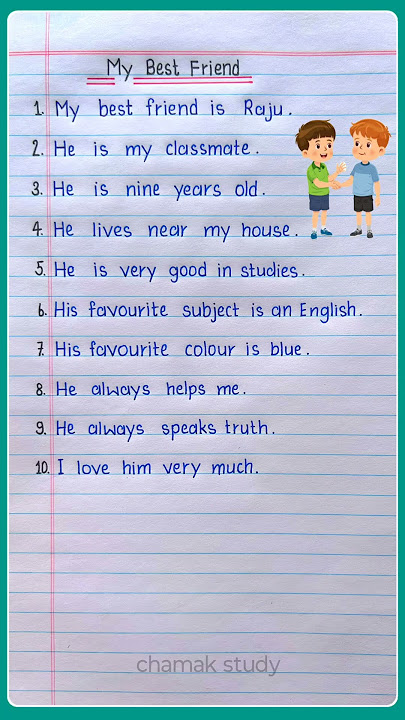 My Best Friend
1. My best friend is Raju.
2. He is my classmate.
3. He is nine years old.
4. He lives near my house.
5. He is very good in studies.
6. His favourite subject is an English.
7. His favourite colour is blue.
8. He always helps me.
9. He always speaks truth.
10. I love him very much.
chamak study